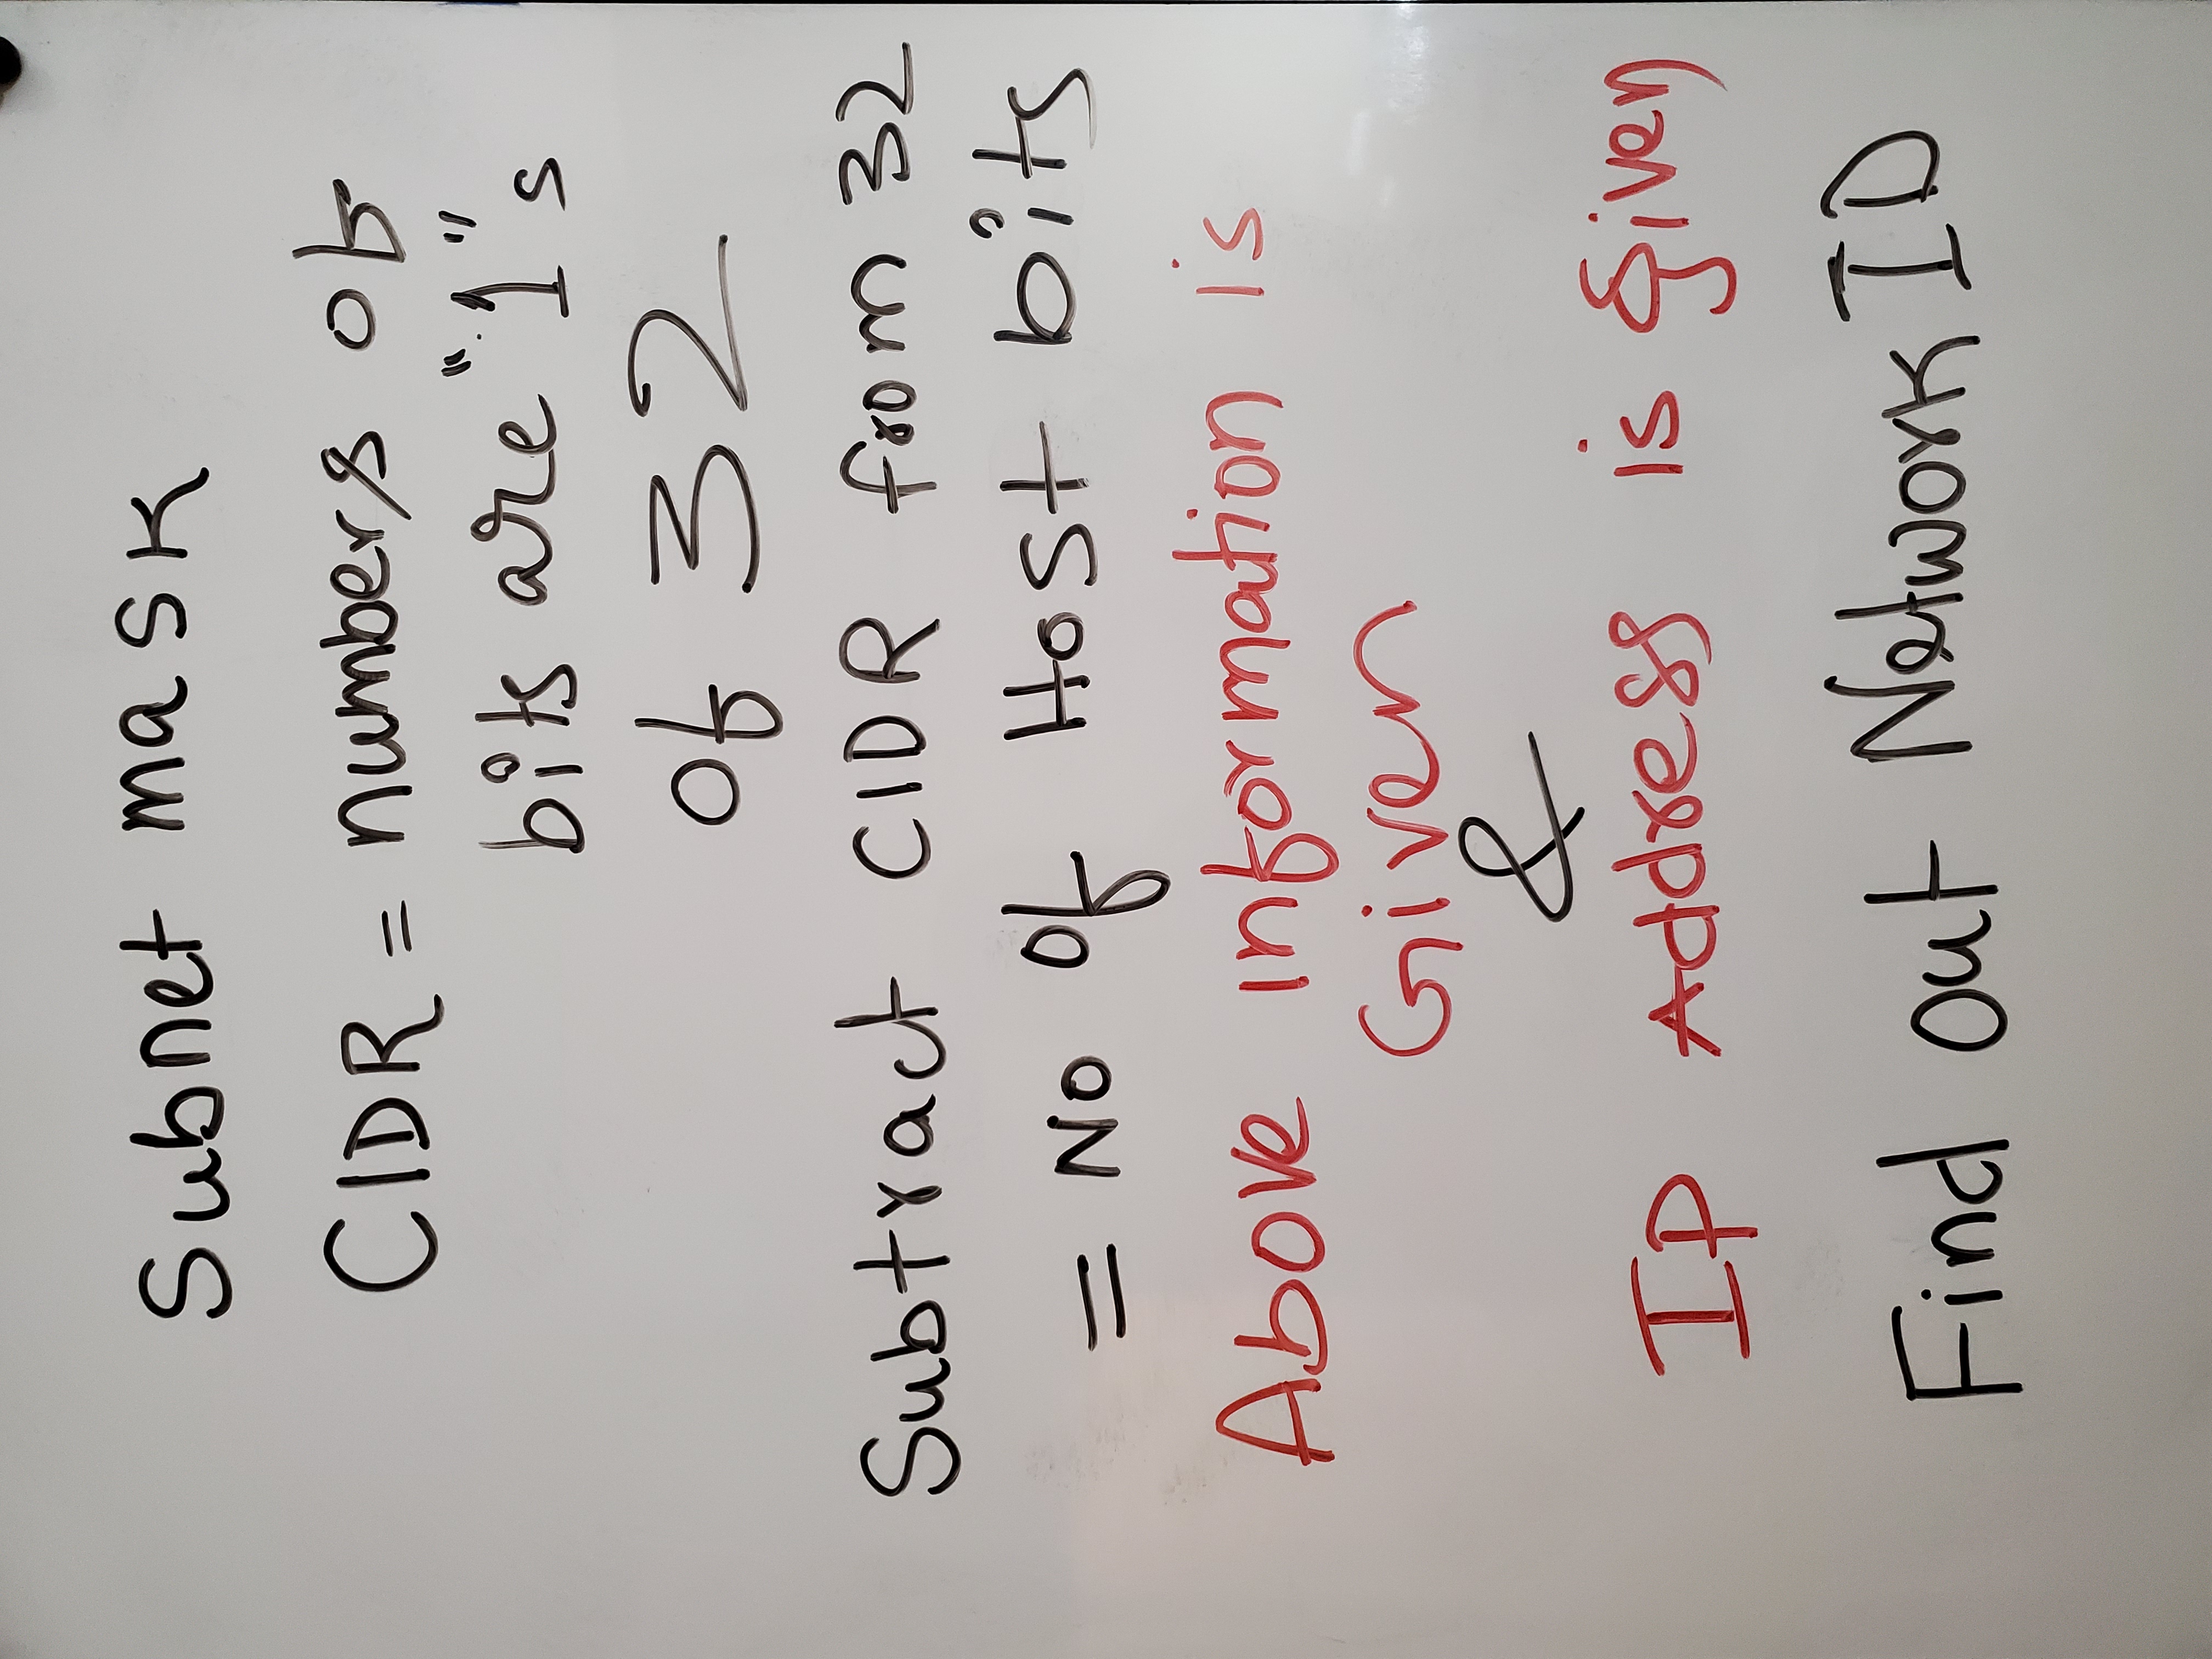 Subnet mask
CIDR = numbers of
bits are "1"s
of 32
Subtract CIDR from 32
= No of Host bits
Above information is
Given
&
IP Address is Given
Find out Network ID